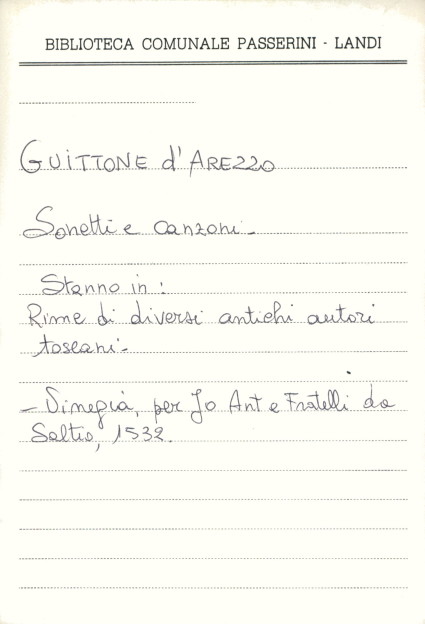 BIBLIOTECA COMUNALE PASSERINI - LANDI
GUITTONE d'AREZZO
Sonetti e canzoni -
Stanno in :
Rime di diversi antichi autori
toscani -
- Vinegia, per Jo Ant e Fratelli da
Sabio, 1532.